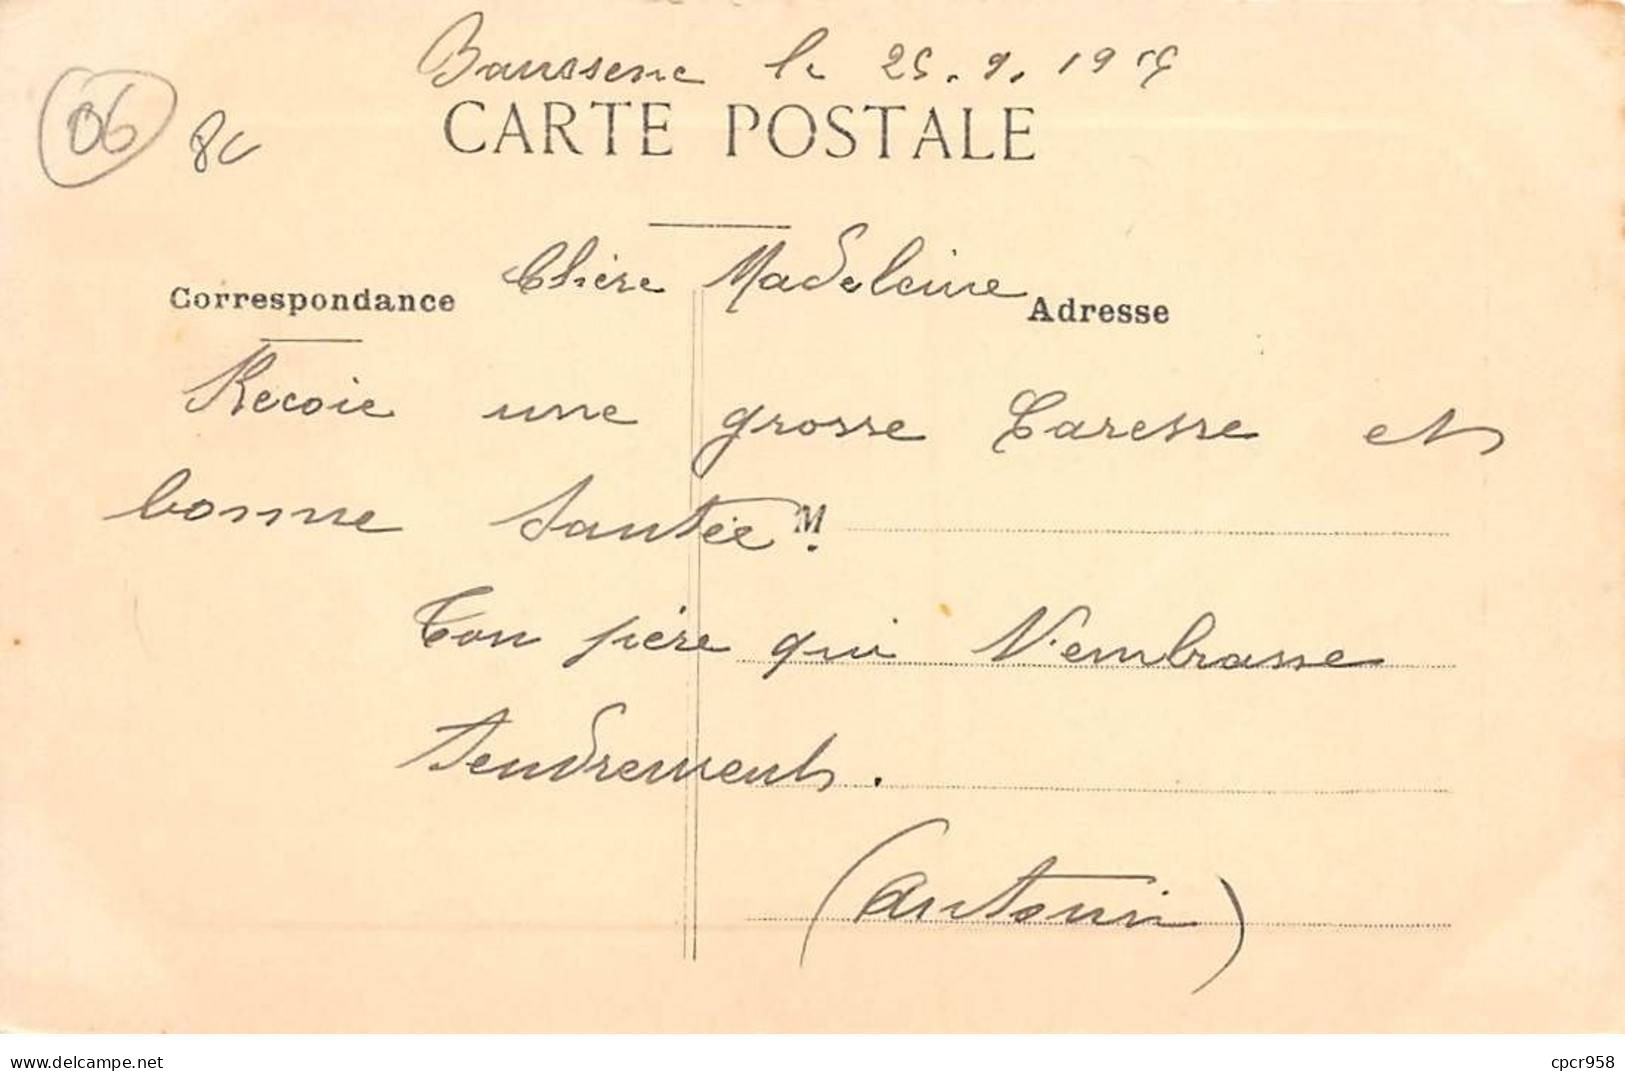 le 25.9.19
06
CARTE POSTALE
Chère Madeleine
Correspondance
Adresse
Recoie une grosse Caresse et
bonne Santée
M.
Ton père qui t'embrasse
tendrement.
(Antonin)
www.delcampe.net
cpcr958